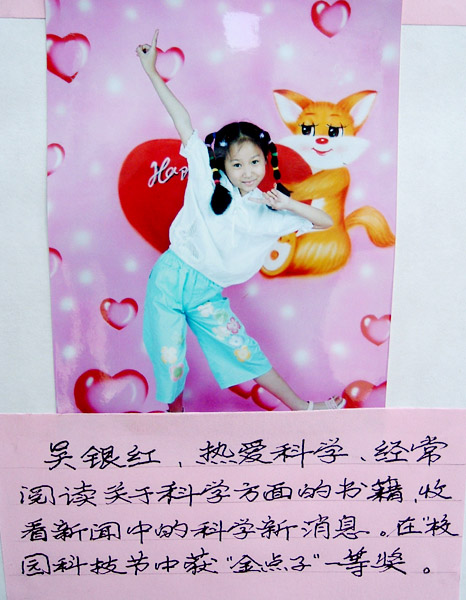 Hap
吴银红、热爱科学、经常
阅读关于科学方面的书籍,收
看新闻中的科学新消息。在"校
园科技节中获"金点子"一等奖。